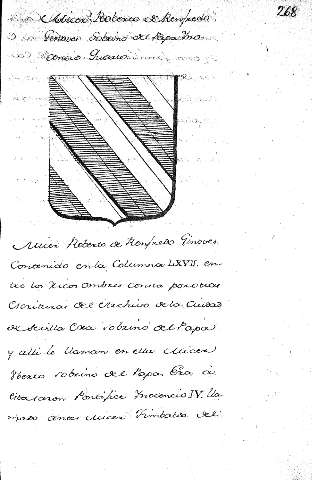 268
Micer Roberto de Renfredo
Genoves sobrino del Papa Ino
cencio Quarto
Micer Roberto de Renfredo Ginoves
Contenido en la Columna LXVII. en
tre los Ricos ombres consta por otras
Escrituras del Archivo de la Ciudad
de Sevilla Era sobrino del Papa
y alli le llaman en ella Micer
sobrino del Papa. Era
Pontifice Inocencio IV. lla
antes Micer del